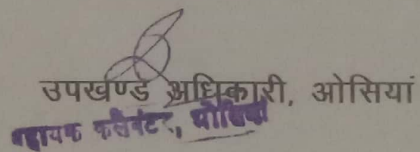 उपखण्ड अधिकारी, ओसियां
सहायक कलेक्टर, ओसियां